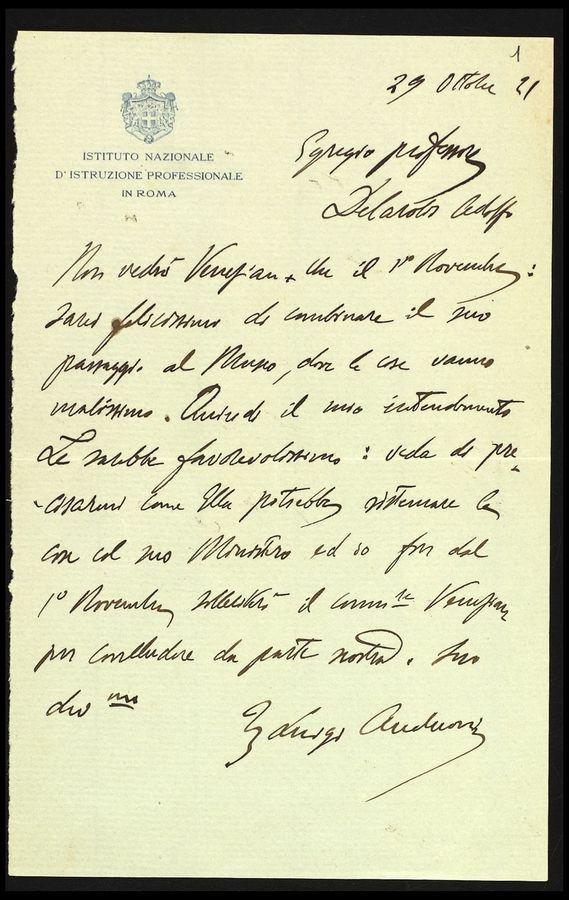 1
29 Ottobre 21
ISTITUTO NAZIONALE
D'ISTRUZIONE PROFESSIONALE
IN ROMA
Egregio professore
Delarobs Adolfo
Non vedrò Venezian che il 1º Novembre:
sarei felicissimo di combinare il suo
passaggio al Museo, dove le cose vanno
malissimo. Quindi il mio intendimento
Le sarebbe favorevolissimo: veda di pre-
cisarmi come Ella potrebbe sistemare le
cose col suo Ministero ed io fin dal
1º Novembre solleciterò il comm.re Venezian
per concludere da parte nostra. Suo
devmo
Luigi